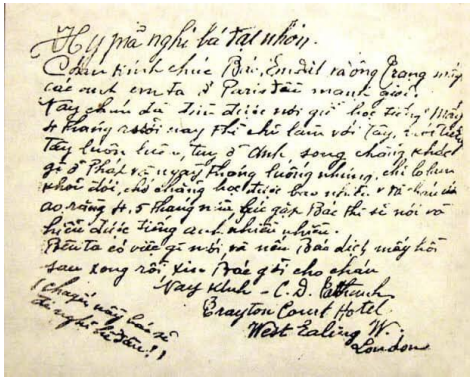 Hy mã nghi bá đại nhơn.
Cháu kính chúc Bác, Em Dật và ông Trạng mấy
các anh em ta ở Paris đều mạnh giỏi.
Nay cháu đã tìm được nơi học tiếng. Mấy
4 tháng rưỡi nay thì chỉ làm với Tây, nói tiếng
tây luôn luôn, tuy ở Anh, song chẳng khác
gì ở Pháp và ngày tháng luống những chỉ lo
khỏi đói, chớ chẳng học được bao nhiêu.
ao rằng 4, 5 tháng nữa lúc gặp Bác thì sẽ nói và
hiểu được tiếng anh nhiều nhiều.
Bên ta có việc gì mới và nếu Bác dịch mấy hồi
sau xong rồi, xin Bác gởi cho cháu
Nay kính - C. D. Tất Thành
Drayton Court Hotel
West Ealing W.
London
(chuyến này bác sẽ
đi nghỉ hè đâu!)